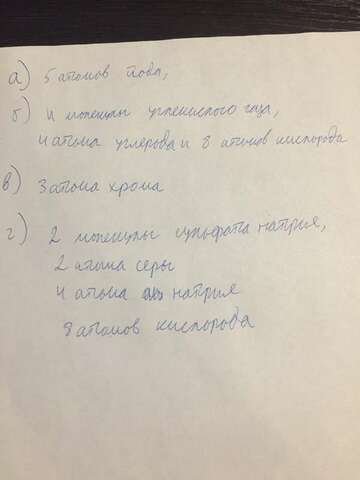 а) 5 атомов йода,
б) 4 молекулы углекислого газа,
4 атома углерода и 8 атомов кислорода
в) 3 атома хрома
г) 2 молекулы сульфата натрия,
2 атома серы
4 атома натрия
8 атомов кислорода